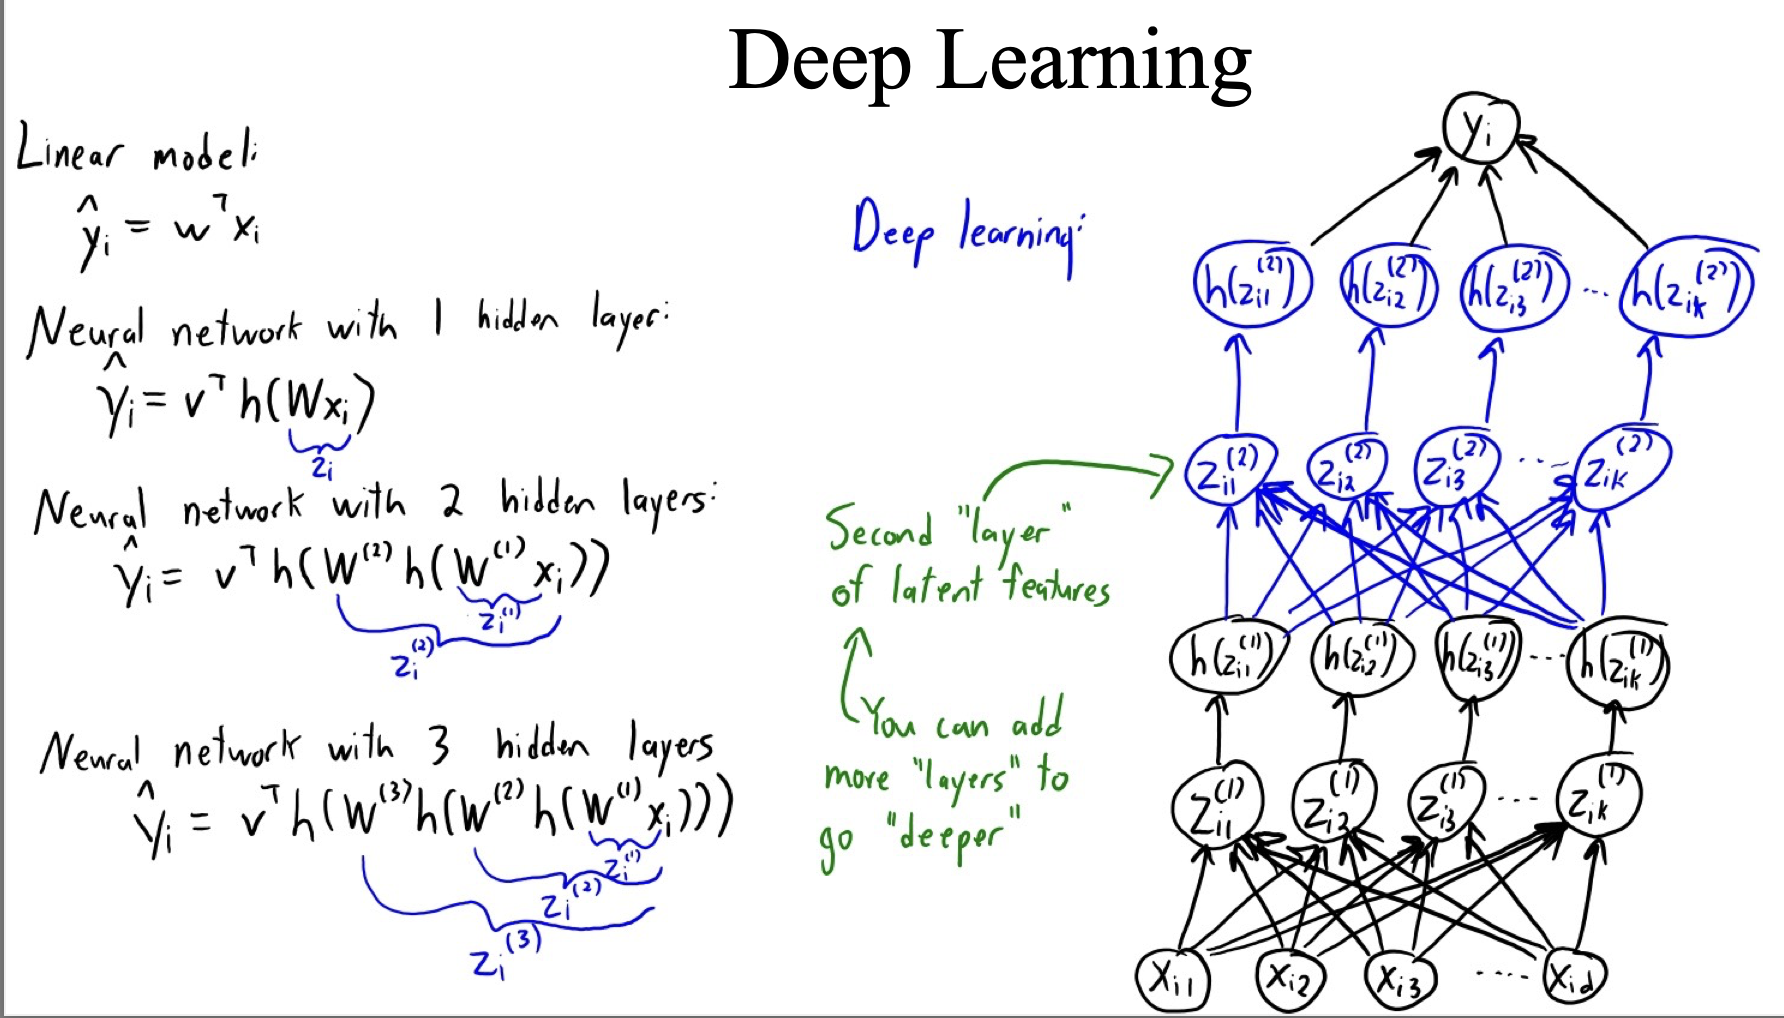 Deep Learning
Linear model:
ŷᵢ = wᵀxᵢ
Neural network with 1 hidden layer:
ŷᵢ = vᵀh(Wxᵢ)
zᵢ
Neural network with 2 hidden layers:
ŷᵢ = vᵀh(W⁽²⁾h(W⁽¹⁾xᵢ))
zᵢ⁽¹⁾
zᵢ⁽²⁾
Neural network with 3 hidden layers
ŷᵢ = vᵀh(W⁽³⁾h(W⁽²⁾h(W⁽¹⁾xᵢ)))
zᵢ⁽¹⁾
zᵢ⁽²⁾
zᵢ⁽³⁾
Deep learning:
Second "layer"
of latent features
You can add
more "layers" to
go "deeper"
yᵢ
h(zᵢ₁⁽²⁾) h(zᵢ₂⁽²⁾) h(zᵢ₃⁽²⁾) ... h(zᵢₖ⁽²⁾)
zᵢ₁⁽²⁾ zᵢ₂⁽²⁾ zᵢ₃⁽²⁾ ... zᵢₖ⁽²⁾
h(zᵢ₁⁽¹⁾) h(zᵢ₂⁽¹⁾) h(zᵢ₃⁽¹⁾) ... h(zᵢₖ⁽¹⁾)
zᵢ₁⁽¹⁾ zᵢ₂⁽¹⁾ zᵢ₃⁽¹⁾ .... zᵢₖ⁽¹⁾
xᵢ₁ xᵢ₂ xᵢ₃ ..... x_id